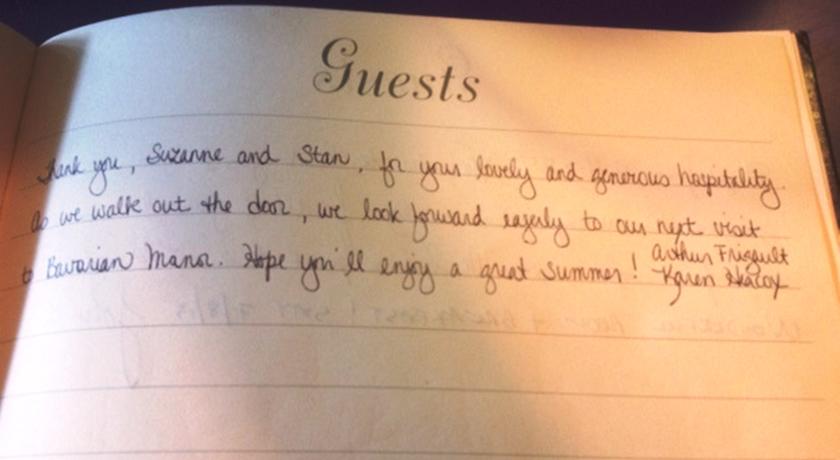 Guests
Thank you, Suzanne and Stan, for your lovely and generous hospitality.
As we walk out the door, we look forward eagerly to our next visit
to Bavarian Manor. Hope you'll enjoy a great summer! Arthur
Karen